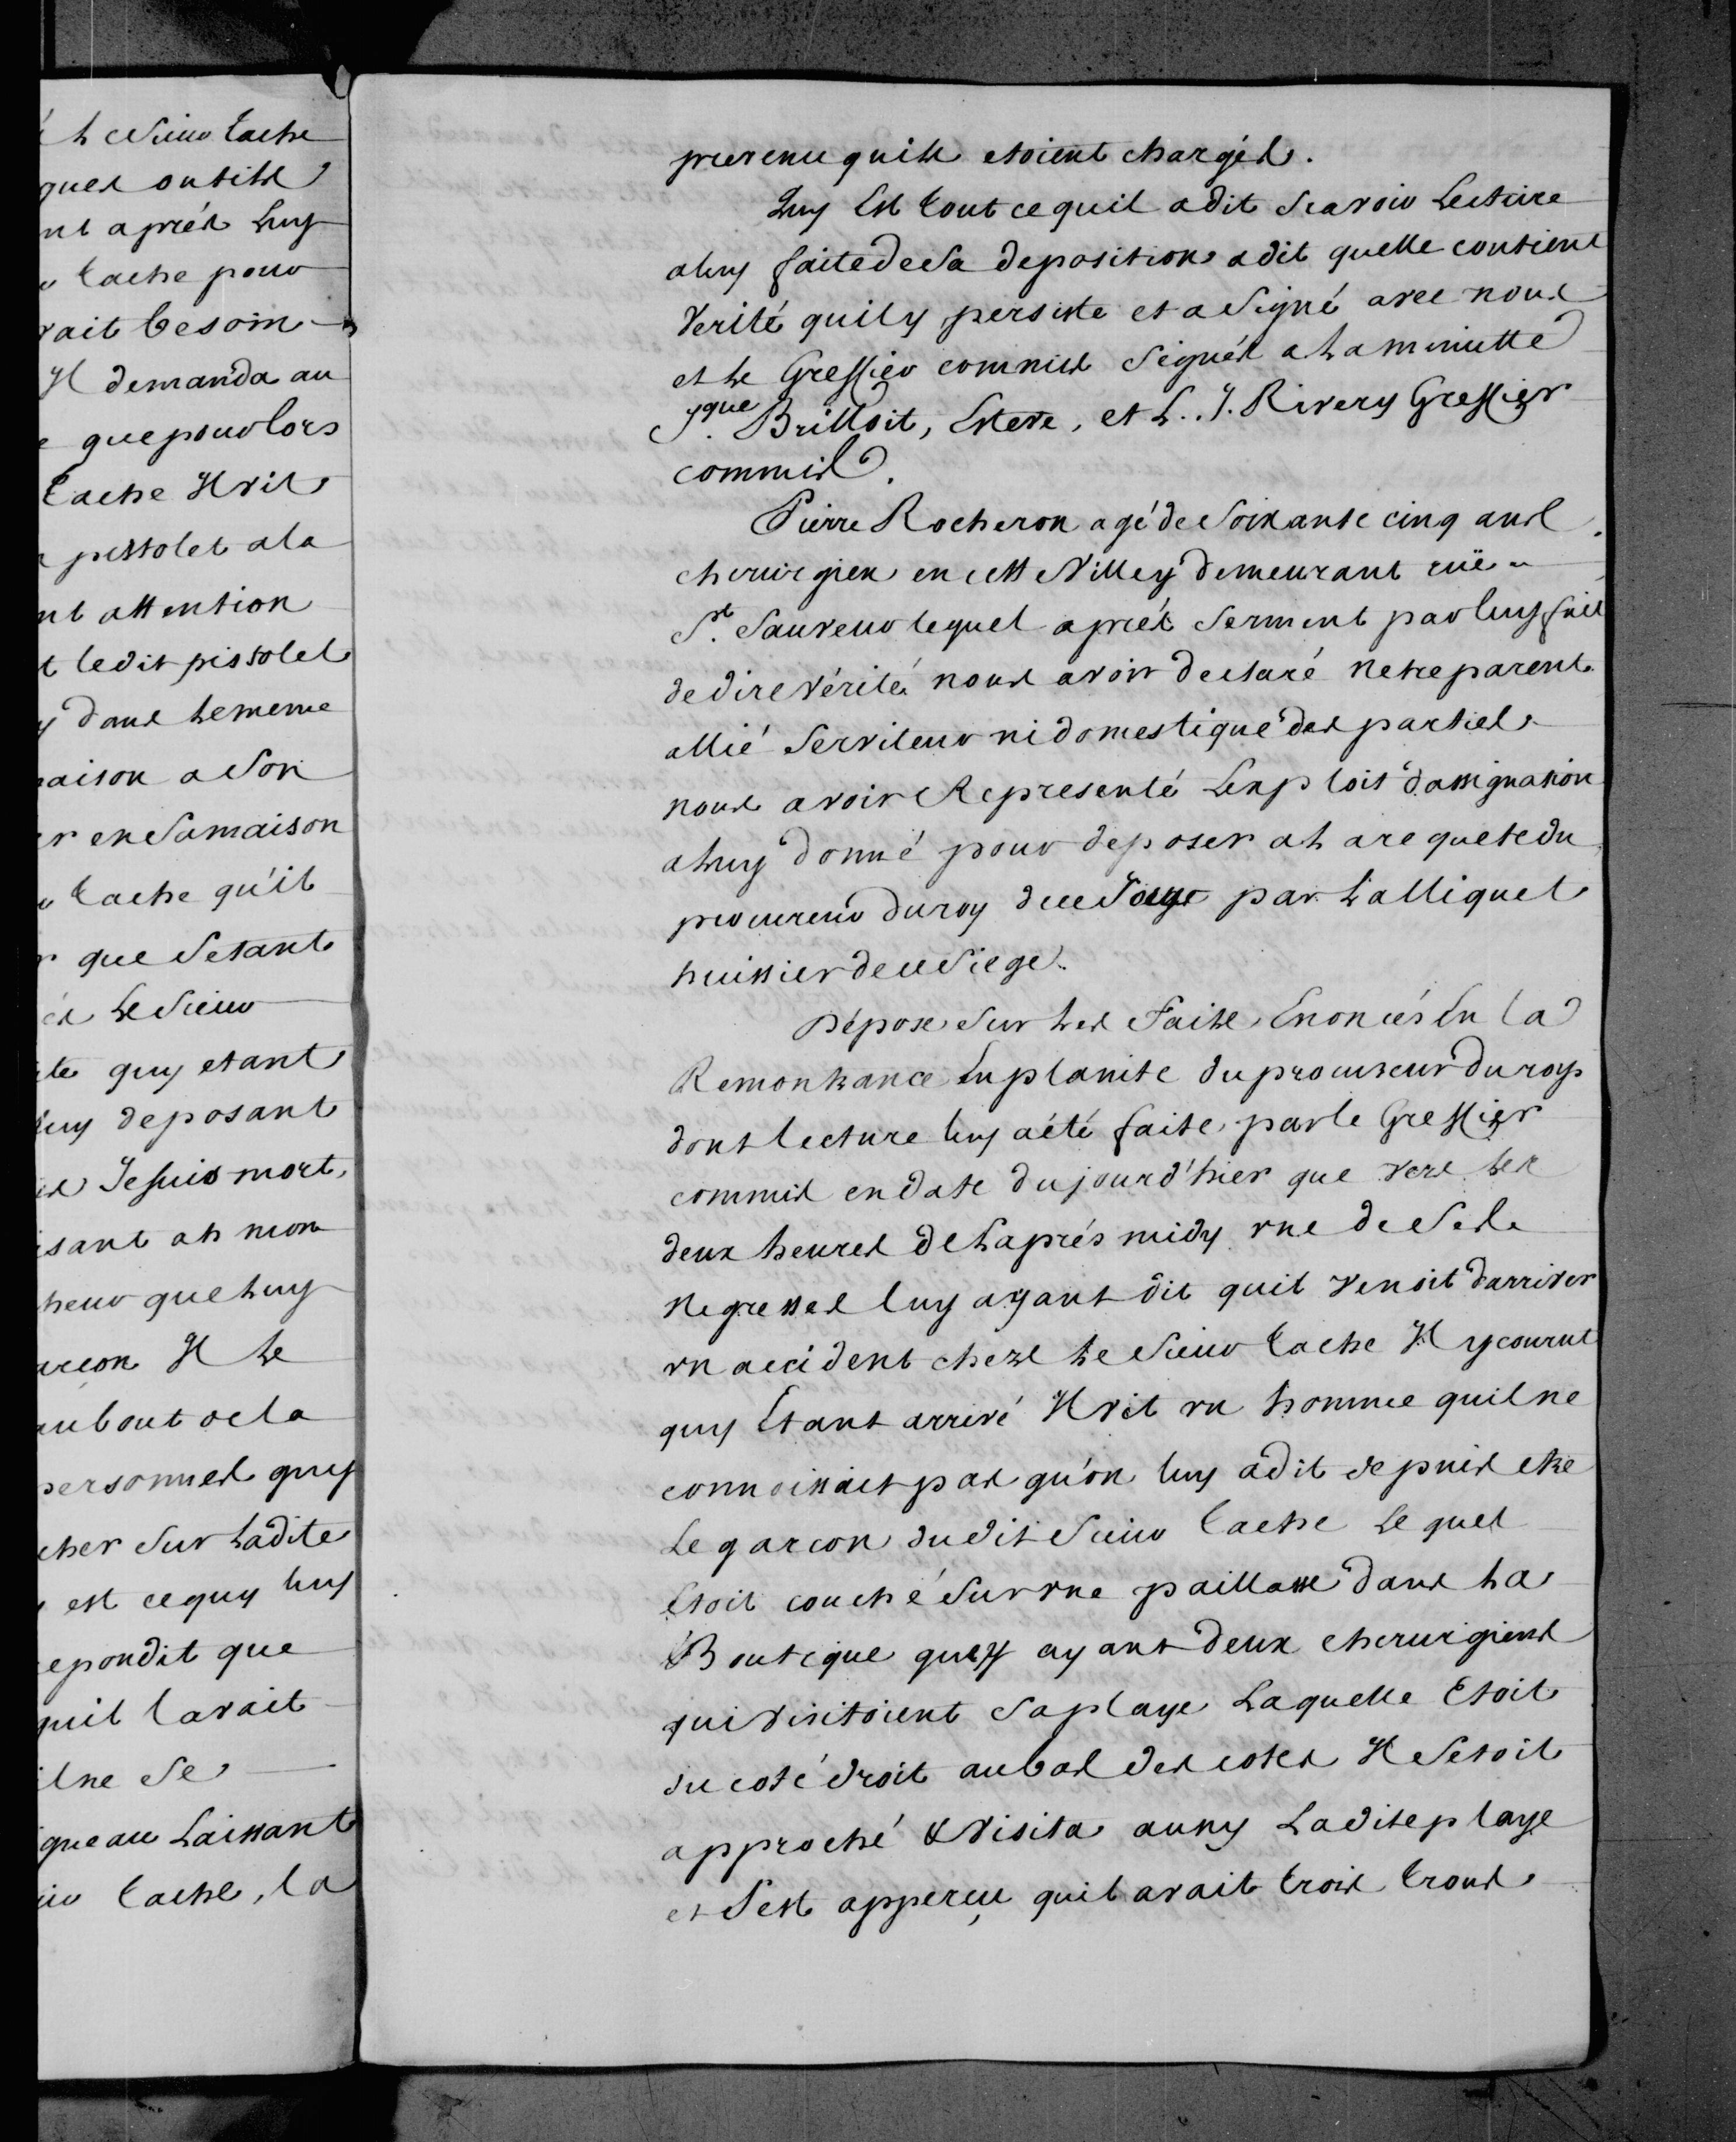 h ce Sieur Cache
ques outils
nt aprés Luy
r Cache pour
rait besoin
Il demanda au
e que pour lors
Cache Il vit
pistolet a la
nt attention
t ledit pistolet
y dans le meme
aison a Son
er en Sa maison
r Cache qu'il
r que S'etant
és Le Sieur
te quy etant
luy deposant
is Je suis mort,
isant ah mon
heur que Luy
arcon Il Le
au bout de la
personnes quy
cher Sur Ladite
est ce quy Luy
epondit que
quil l'avait
il ne Se
que au Laissant
ur Cache, la
prevenu quils etoient chargés.
Quy Est tout ce quil a dit Scavoir Lecture
a luy faite de Sa deposition a dit quelle contient
Verité quil y persiste et a Signé avec nous
et Le Greffier commis Signés a La minutte
Brilloit, Esteve, et L. J. Rivery Greffier
commis.
Pierre Rocheron agé de Soixante cinq ans
cherurgien en cette Ville y demeurant rüe
St. Sauveur lequel aprés Serment par luy fait
de dire vérité nous avoir declaré netre parent
allié Serviteur ni domestique des parties
nous avoir Representé Lexploit dassignation
a luy donné pour deposer a La requete du
procureur du roy de ce Siege par Lalliquet
huissier de ce Siege.
Dépose Sur Les Faits Enoncés En la
Remontrance En plainte du procureur du roy
dont lecture luy a été faite par le Greffier
commis en date du jour d'hier que vers Les
deux heures de Laprés midy vne de Ses
Negresses luy ayant dit quil venoit darriver
vn accident chez Le Sieur Cache Il y courut
quy Etant arrivé Il vit vn homme quil ne
connoissait pas qu'on luy a dit depuis etre
Le garcon dudit Sieur Cache Lequel
Etoit couché Sur vne paillasse dans La
Boutique quil y ayant deux cherurgiens
qui visitoient Sa playe Laquelle Etoit
du coté droit au bas des cotes Il Setoit
approché & Visita aussy Ladite playe
et Sest apperçu quil avait trois trous